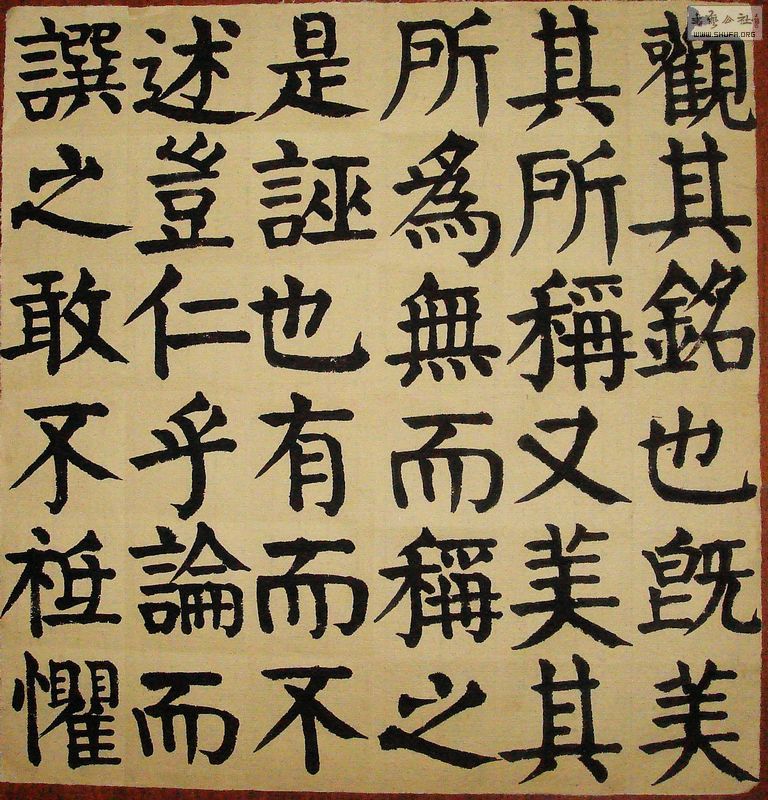 觀其銘也既美
其所稱又美其
所為無而稱之
是誣也有而不
述豈仁乎論而
譔之敢不祗懼
WWW.SHUFA.ORG